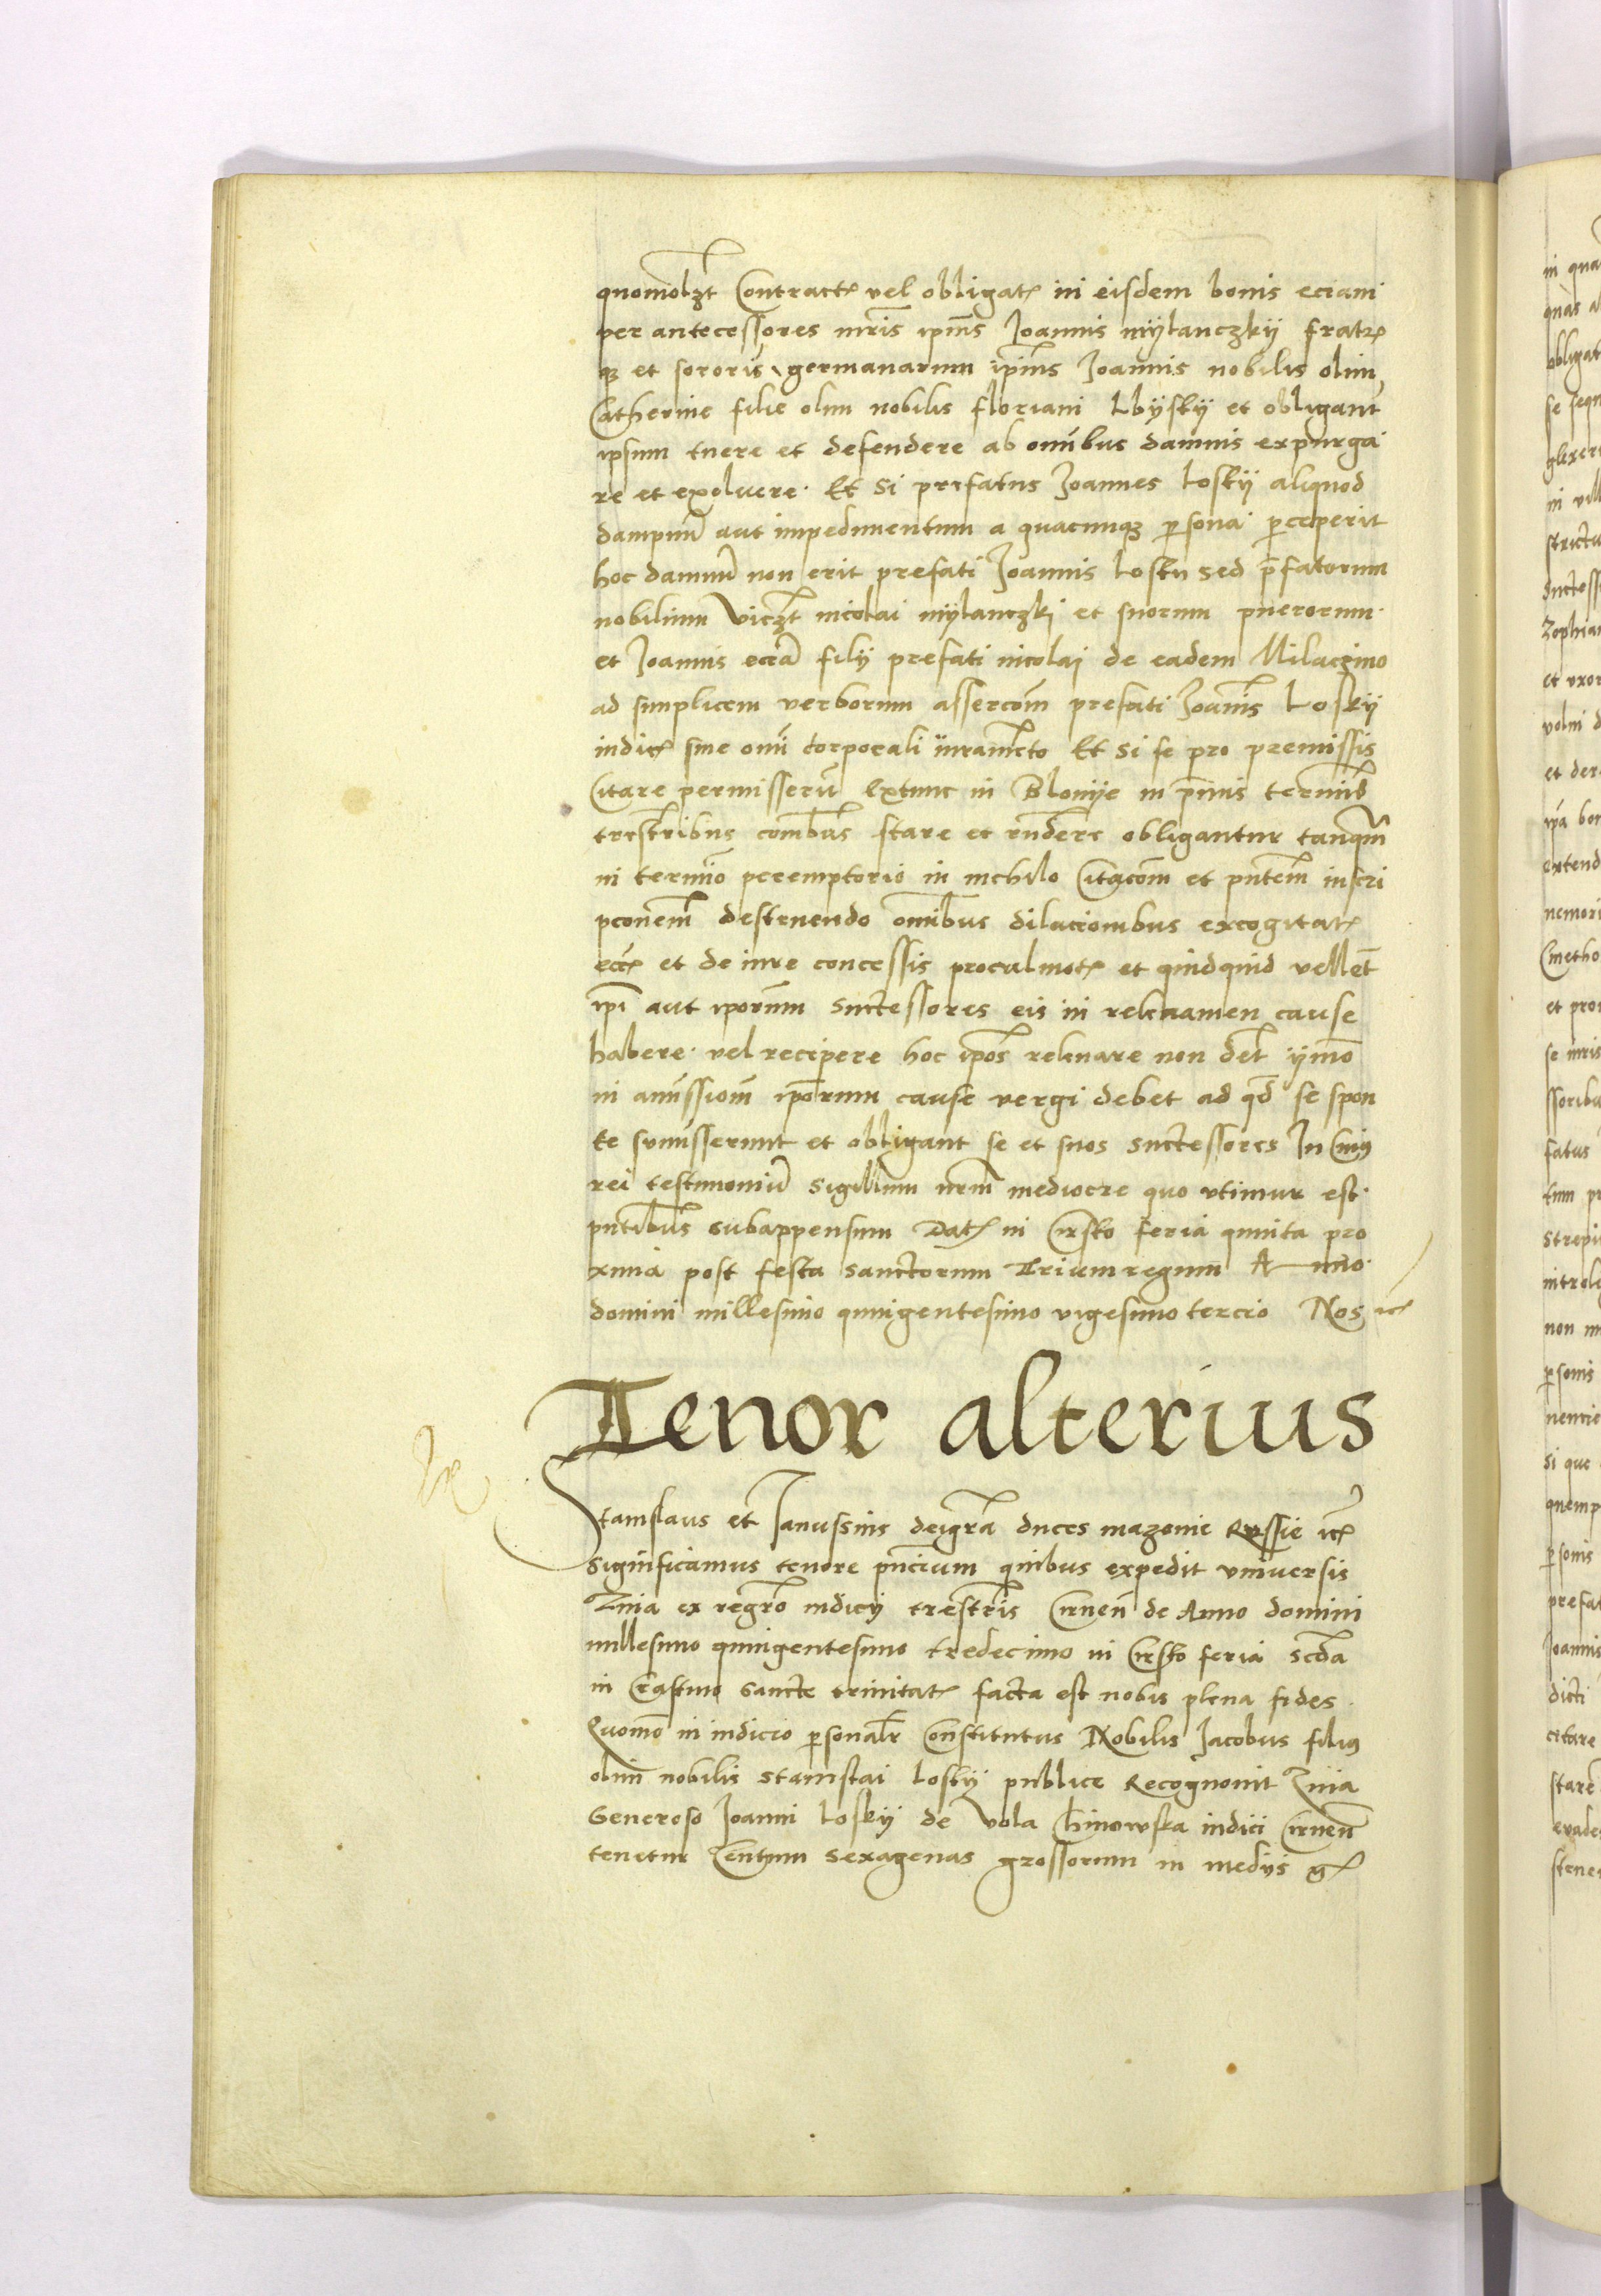 quomolzt Contract vel obligat in eisdem bonis eciam
per antecessores mris ipius Joannis mylanczkÿ fratr
qz et sororis germanarum ipius Joannis nobilis olim
Catherine filie olim nobilis floriani Lbÿskÿ et obligant
ipsum tuere et defendere ab omībus damnis expurga
re et exolvere. Et si prefatus Joannes Loskÿ aliquod
dampnū aut impedimentum a quacunqz psona pceperit
hoc damnū non erit prefati Joannis Loskÿ sed pfatorum
nobilium viczt nicolai mÿlanczkj et suorum puerorum.
et Joannis eciā filÿ prefati nicolaj de eadem Milaczino
ad simplicem verborum assercōm prefati Joānis Loskÿ
iudicis sine omī corporali iuramēto Et si se pro premissis
Citare permisserīt Extunc in Blonÿe in pmis termis
trestribus comībus stare et rndere obligantur tanqm
in termio peremptorio in nichilo Citacōm et pntem inscri
pconem destruendo omībus dilacionibus excogitat
ecc et de iure concessis proculmot et quidquid vellēt
ipi aut iporum successores eis in relevamen cause
habere. vel recipere hoc ipos relevare non dēt ÿmo
in amissiom iporum cause vergi debet ad qd se spon
te summisserunt et obligant se et suos successores In Cuius
rei testimoniū sigillum nrm mediocre quo vtimur est.
pntibus subappensum Dat in Cirsko feria quinta pro
xima post festa sanctorum Triumregum Anno.
domini millesimo quingentesimo vigesimo tercio Nos
Tenor alterius
Stanislaus et Janussius deigra duces mazouie Russie
Significamus tenore pncium quibus expedit vniuersis
Quia ex regro iudicÿ trestris Cirnen de Anno domini
millesimo quingentesimo tredecimo in Cirsko feria scda
in Crastino sancte trinitat facta est nobis plena fides.
Quomo in iudicio psonalr Constitutus Nobilis Jacobus filius
olim nobilis stanislai Loskÿ publice Recognouit Quia
Generoso Joanni Loskÿ de vola Chinowska iudici Cirnen
tenetur Centum sexagenas grossorum in medÿs